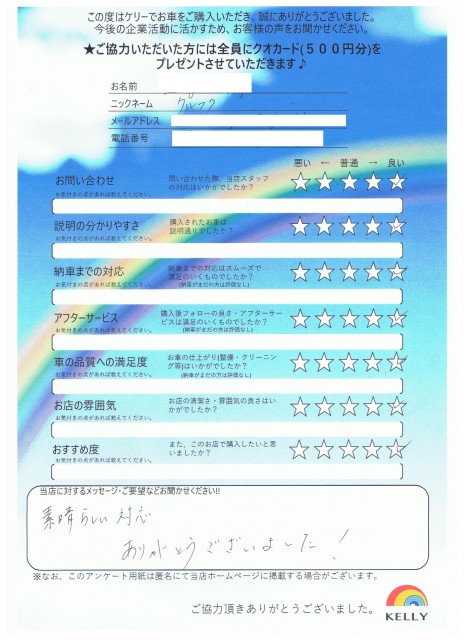 この度はケリーでお車をご購入いただき、誠にありがとうございました。
今後の企業活動に活かすため、お客様の声をお聞かせください。
★ご協力いただいた方には全員にクオカード(500円分)を
プレゼントさせていただきます♪
お名前
ニックネーム
メールアドレス
電話番号
悪い ← 普通 → 良い
お問い合わせ 問い合わせた際、当店スタッフ
お気付きの点があれば教えてください。 の対応はいかがでしたか?
説明の分かりやすさ 購入されたお車は
お気付きの点があれば教えてください。 説明通りでしたか?
納車までの対応 納車までの対応はスムーズで
お気付きの点があれば教えてください。 満足のいくものでしたか?
(納車がまだの方は評価なし)
アフターサービス 購入後フォローの良さ・アフターサー
お気付きの点があれば教えてください。 ビスは満足のいくものでしたか?
(納車がまだの方は評価なし)
車の品質への満足度 お車の仕上がり(整備・クリーニン
お気付きの点があれば教えてください。 グ等)はいかがでしたか?
(納車がまだの方は評価なし)
お店の雰囲気 お店の清潔さ・雰囲気の良さはい
お気付きの点があれば教えてください。 かがでしたか?
おすすめ度 また、このお店で購入したいと思
お気付きの点があれば教えてください。 いましたか?
当店に対するメッセージ・ご要望などお聞かせください!!
素晴らしい対応
ありがとうございました!
※なお、このアンケート用紙は匿名にて当店ホームページに掲載する場合がございます。
ご協力頂きありがとうございました。
KELLY